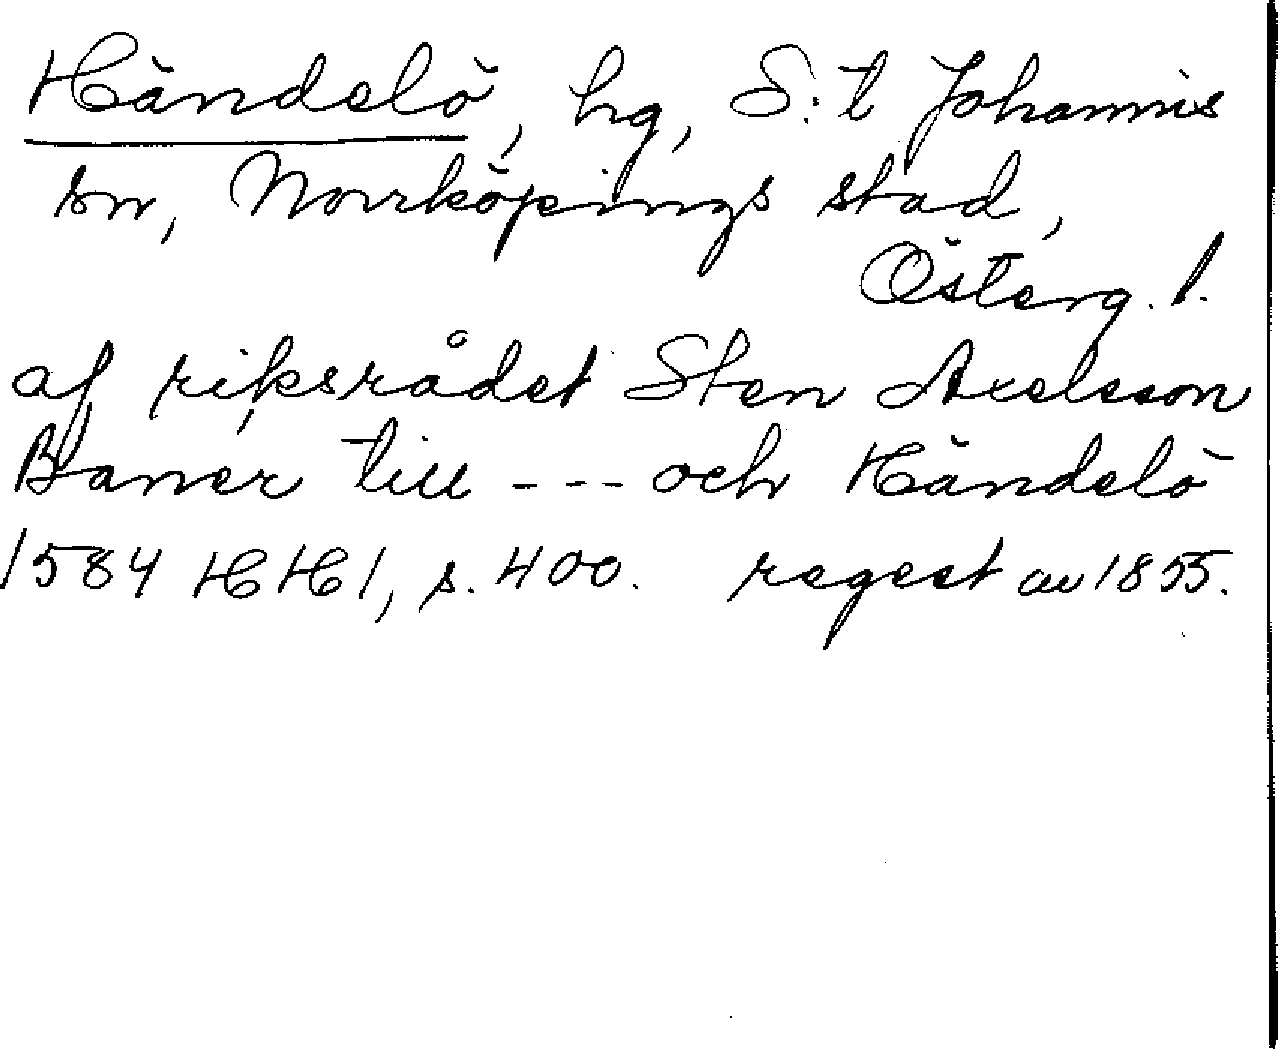 Händelö, hg, S:t Johannis
sn, Norrköpings stad,
Österg. l.
af riksrådet Sten Axelsson
Baner till --- och Händelö
1584 HH 1, s. 400. regest av 1855.